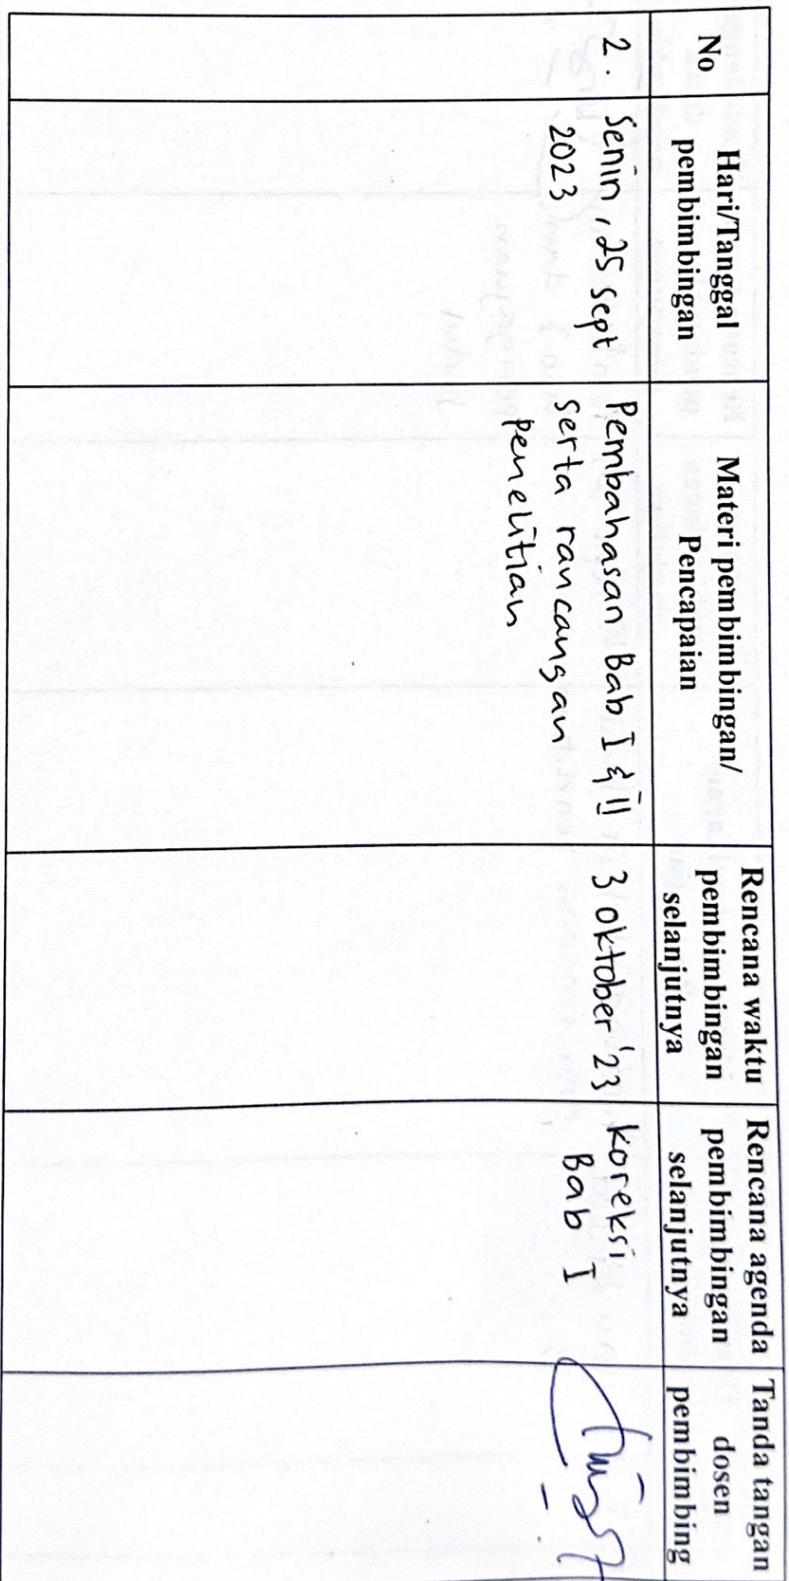 No
Hari/Tanggal
pembimbingan
Materi pembimbingan/
Pencapaian
Rencana waktu
pembimbingan
selanjutnya
Rencana agenda
pembimbingan
selanjutnya
Tanda tangan
dosen
pembimbing
2.
Senin, 25 Sept
2023
Pembahasan Bab I & II
serta rancangan
penelitian
3 Oktober '23
Koreksi
Bab I